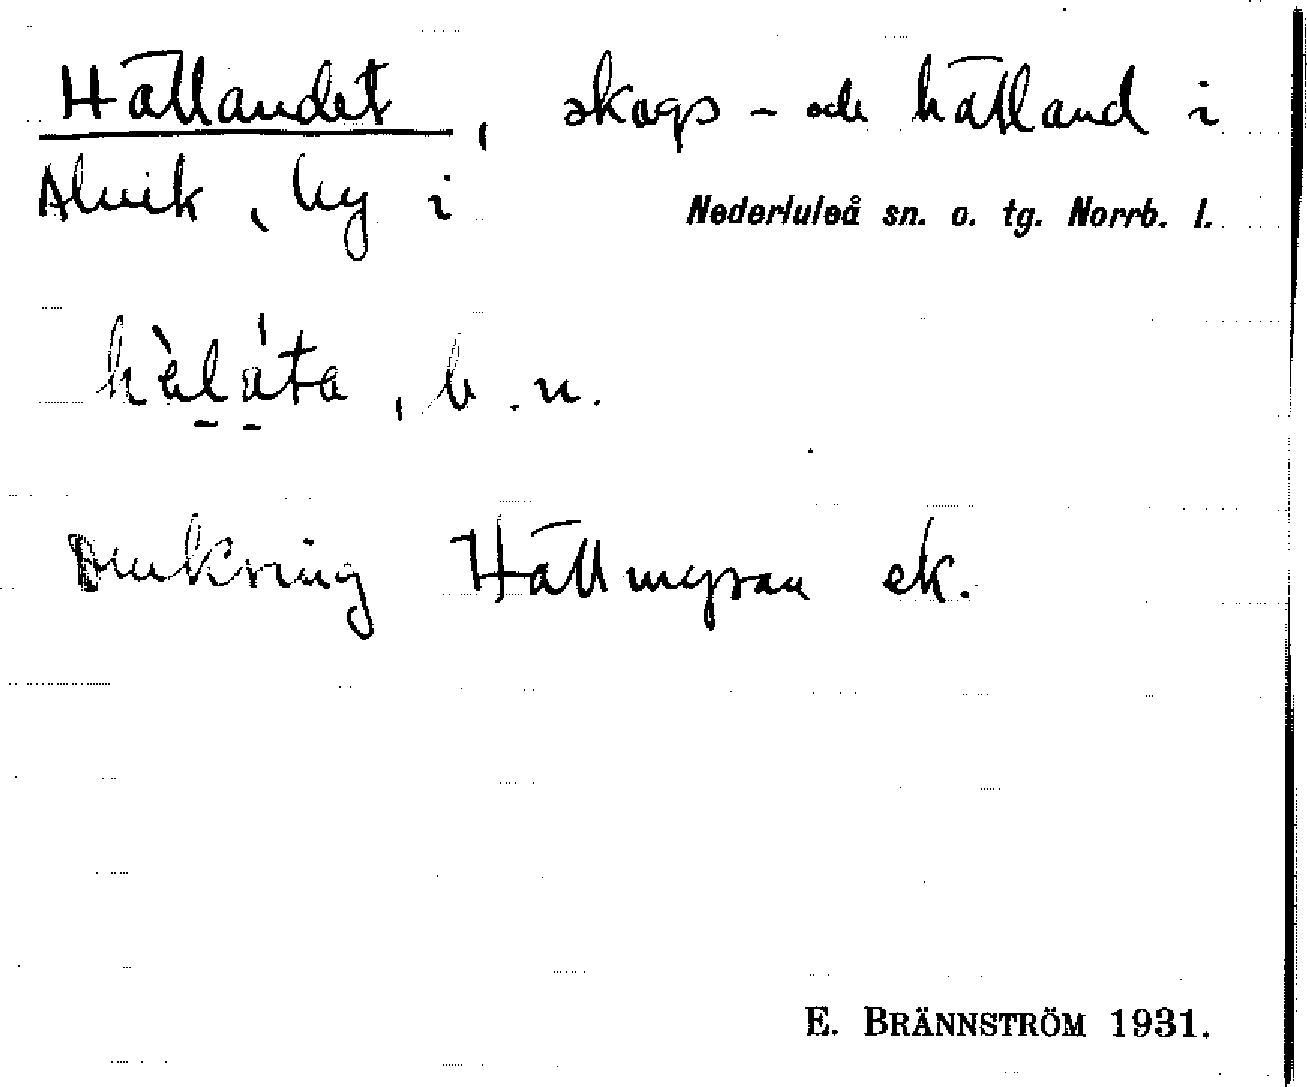 Hällandet, skogs- och hälland i
Alvik, by i Nederluleå sn. o. tg. Norrb. l.
hὲláta, b.n.
Omkring Hällmyran ek.
E. BRÄNNSTRÖM 1931.